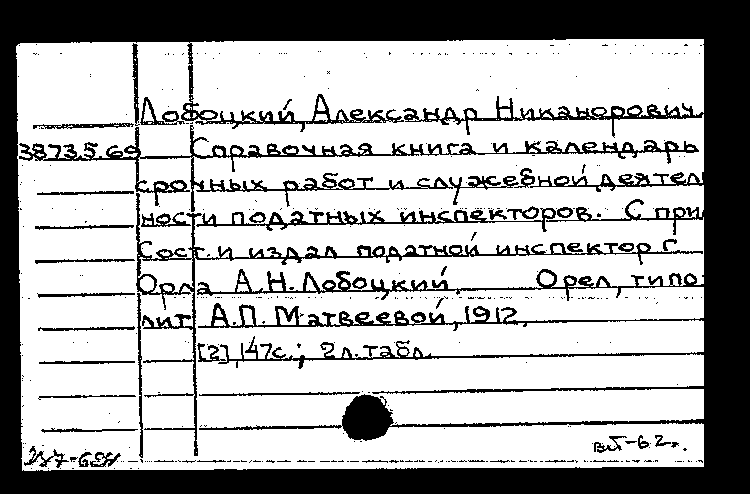 Лобоцкий, Александр Никанорович.
3873.5.69 Справочная книга и календарь
срочных работ и служебной деятел
ности податных инспекторов. С при
Сост. и издал податной инспектор г.
Орла А.Н. Лобоцкий. Орел, типо-
лит. А.П. Матвеевой, 1912.
[2], 147с.; 2л. табл.